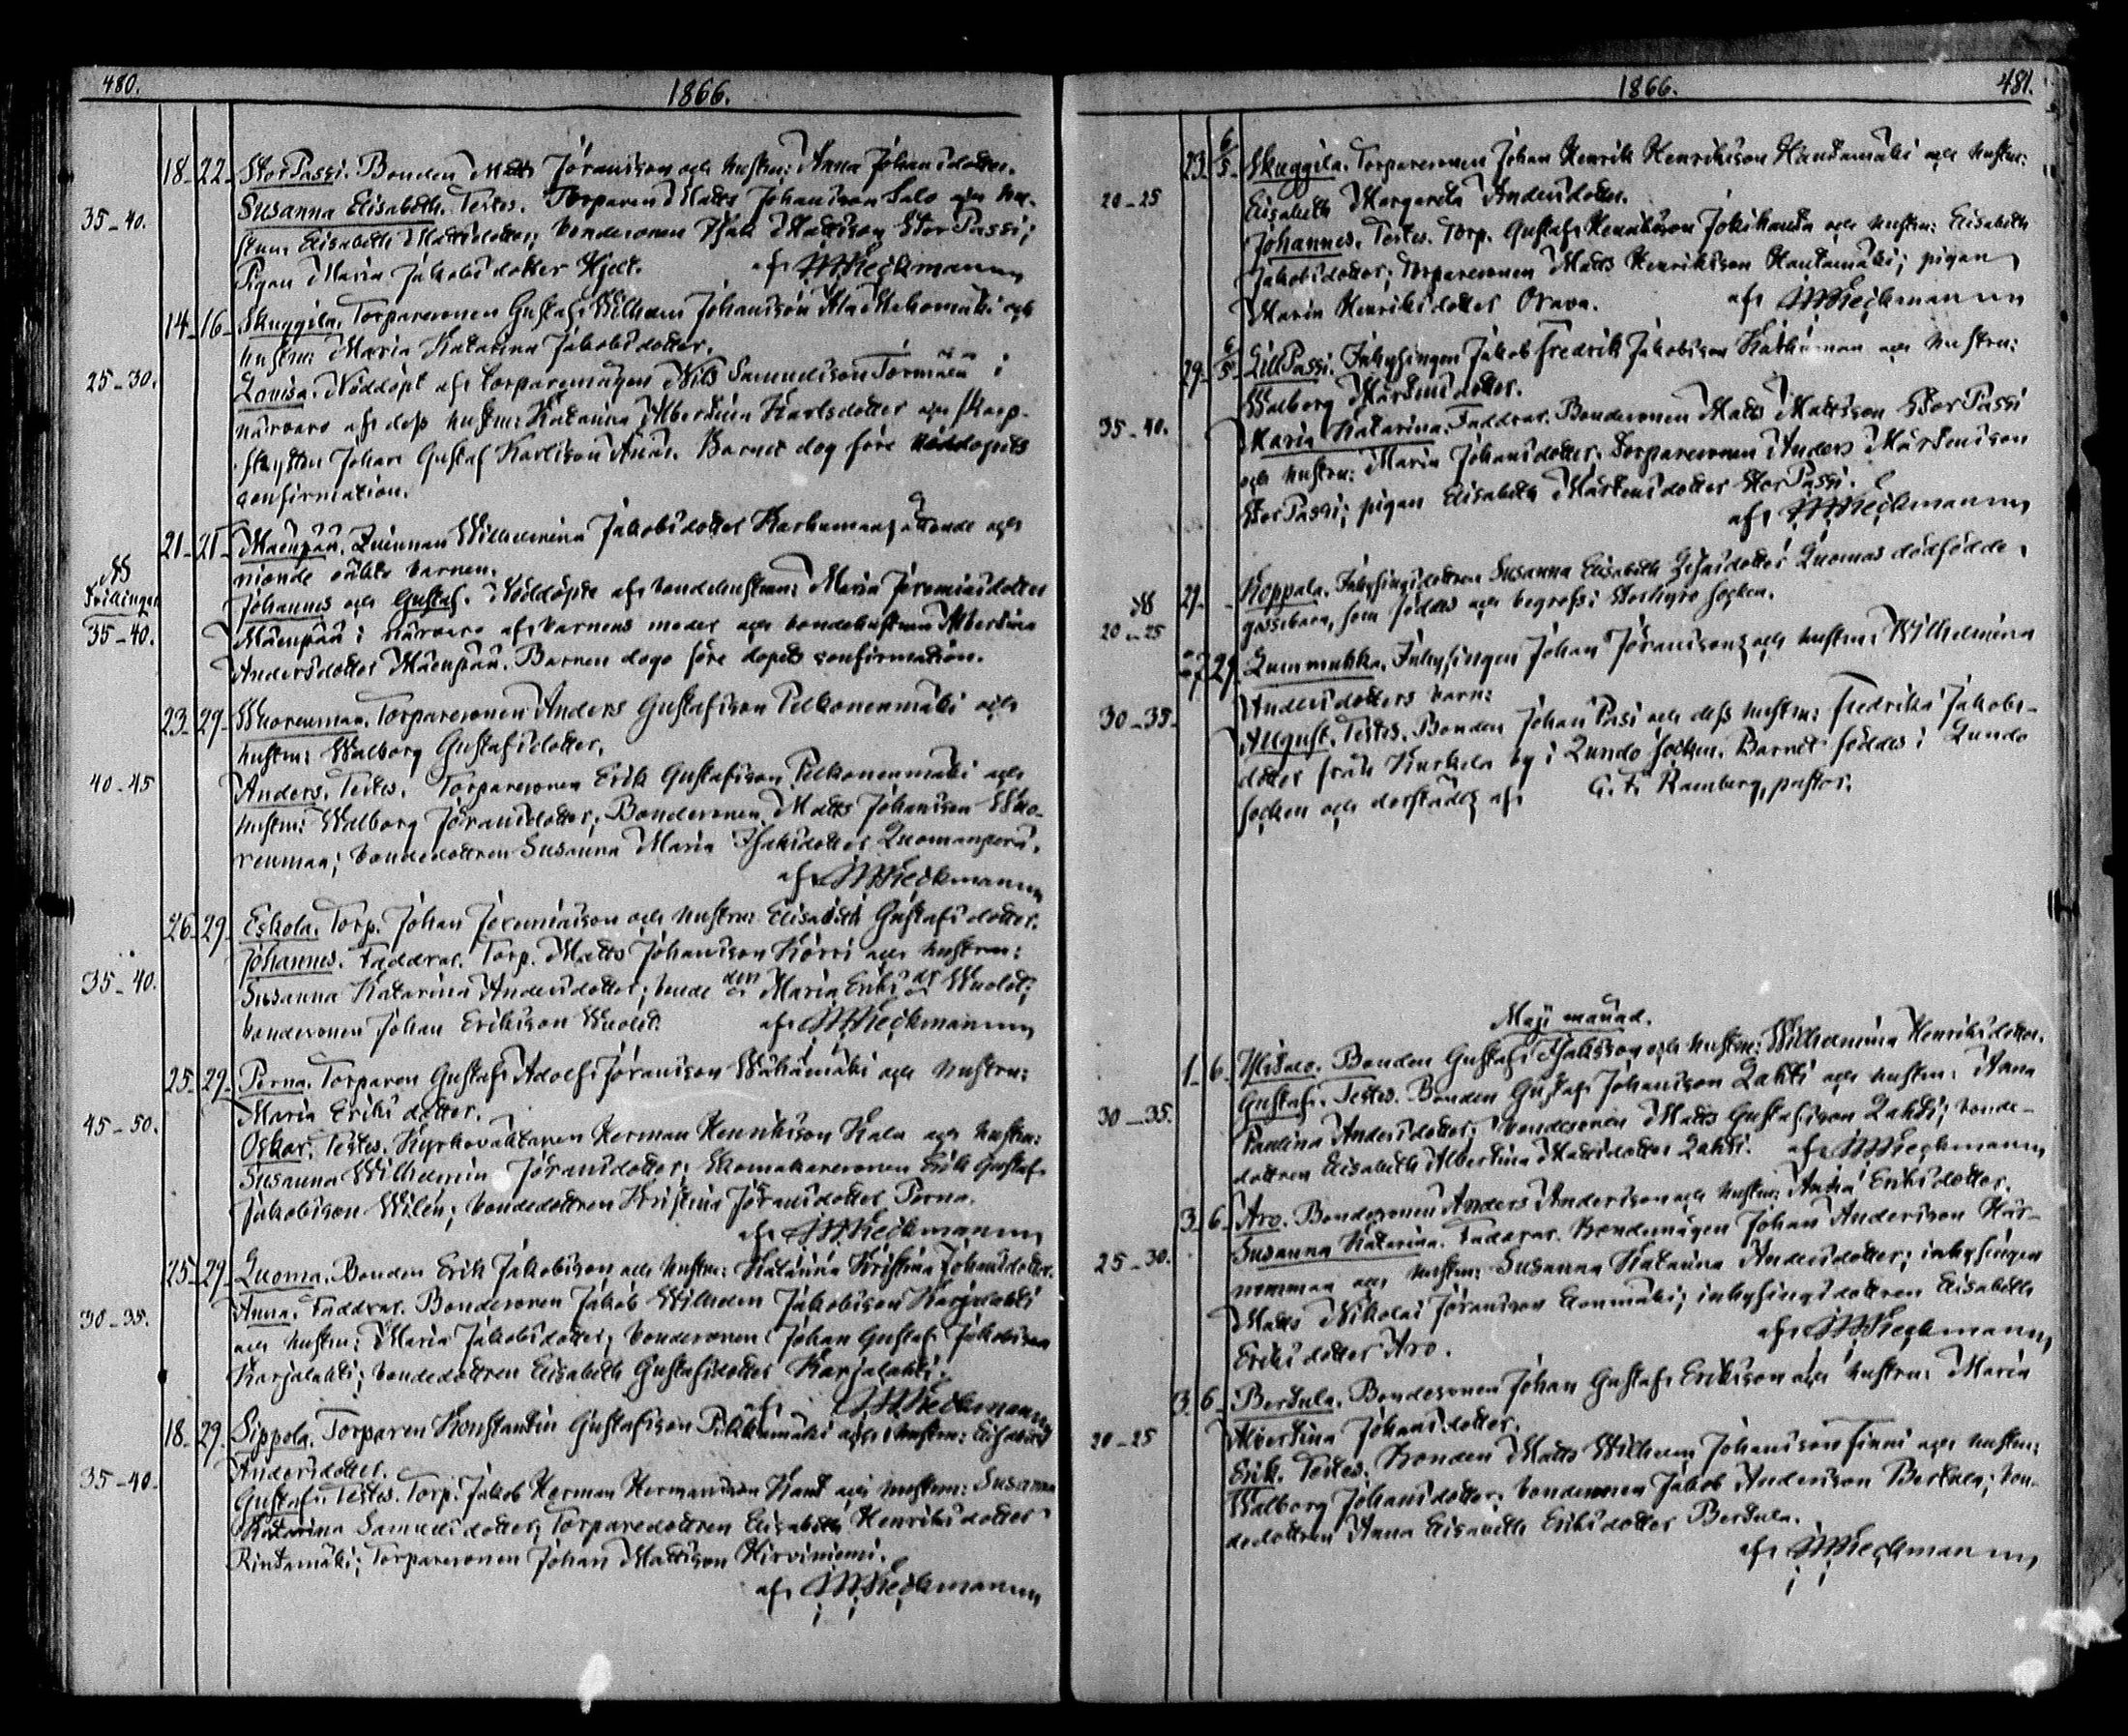 480.
1866.
18 22 Stor Passi. Bonden Matts Jöransson och hustru: Anna Johansdotter.
35-40. Susanna Elisabeth. Testes. Torparen Matts Johansson Salo och hu-
strun Elisabeth Mattsdotter; bondesonen Isak Mattsson Stor Passi;
Pigan Maria Jakobsdotter Hjelt. af
14 16 Skuggila. Torparesonen Gustaf Wilhelm Johansson och
hustru: Maria Katarina Jakobsdotter.
25-30. Lovisa. Nöddöpt af torparemågen Nils Samuelsson Törmälä i
närvaro af dess hustru: Katarina Albertina Karlsdotter och skarp-
skytten Johan Gustaf Karlsson Anäs. Barnet dog före nöddopets
confirmation.
21 21 Mäenpää. Qvinnan Wilhelmina Jakobsdotter Karhumaas åttonde och
nionde oäkta barnen.
NB Tvillingar
35-40. Johannes och Gustaf. Nöddöpte af bondehustrun: Maria Jeremiasdotter
Mäenpää i närvaro af barnens moder och bondehustrun Albertina
Andersdotter Mäenpää. Barnen dogo före dopets confirmation.
23 29 Wuorenmaa. Torparesonen Anders Gustafsson Pelkonenmäki och
hustru: Walborg Gustafsdotter.
40-45 Anders. Testes. Torparesonen Erik Gustafsson Pelkonenmäki och
hustru: Walborg Jöransdotter; Bondesonen Matts Johansson Wuo-
renmaa; bondedottren Susanna Maria Isaksdotter Luomanperä.
af
26 29 Eskola. Torp. Johan Jeremiasson och hustru: Elisabeth Gustafsdotter.
Johannes. Faddrar. Torp. Matts Johansson Körri och hustru:
35-40. Susanna Katarina Andersdotter; bondedn Maria Eriksdr Wuolet;
bondesonen Johan Eriksson Wuolet. af
25 29 Perna. Torparen Gustaf Adolf Jöransson Wähämäki och hustru:
Maria Eriksdotter.
45-50. Oskar. Testes. Kyrkovaktaren Herman Henriksson Kala och hustru:
Susanna Wilhelmin Jöransdotter; Skomakaresonen Erik Gustaf
Jakobsson Wilén; bondedottren Kristina Jöransdotter Perna.
af
25 29 Luoma. Bonden Erik Jakobsson och hustru: Katarina Kristina Johansdotter.
30-35. Anna. Faddrar. Bondesonen Jakob Wilhelm Jakobsson Karjalahti
och hustru: Maria Jakobsdotter; bondesonen Johan Gustaf Jakobsson
Karjalahti; bondedottren Elisabeth Gustafsdotter Karjalahti.
af
18 29 Sippola. Torparen Konstantin Gustafsson och hustru: Elisabeth
Andersdotter.
35-40. Gustaf. Testes. Torp. Jakob Herman Hermansson och hustru: Susanna
Katarina Samuelsdotter; Torparedottren Elisabeth Henriksdotter
Rintamäki; Torparesonen Johan Mattsson Hirviniemi.
af
1866.
481.
23 6/5 Skuggila. Torparesonen Johan Henrik Henriksson Hautamäki och hustru:
20-25 Elisabeth Margareta Andersdotter.
Johannes. Testes. Torp. Gustaf Henriksson Jokihanta och hustru: Elisabeth
Jakobsdotter; torparesonen Matts Henriksson Hautamäki; pigan
Maria Henriksdotter Orava. af
29 6/5 Lill Passi. Inhysingen Jakob Fredrik Jakobsson Karhumaa och hustru:
Walborg Mårtensdotter.
35-40. Maria Katarina. Faddrar. Bondesonen Matts Mattsson Stor Passi
och hustru: Maria Johansdotter; torparesonen Anders Mårtensson
Stor Passi; pigan Elisabeth Mårtensdotter Stor Passi.
af
NB 29 Koppala. Inhysingsdottren Susanna Elisabeth Luomas dödfödde
20-25 gossebarn, som föddes och begrofs i Storkyro socken.
27 29 Lummukka. Inhysingen Johan Jöranssons och hustru: Wilhelmina
Andersdotters barn:
30-35 August. Testes. Bonden Johan Pasi och dess hustru: Fredrika Jakobs-
dotter från Kurkela by i Lundo socken. Barnet föddes i Lundo
socken och döptes af G. F. Ramberg, pastor.
Maji månad.
1 6 Ylisalo. Bonden Gustaf Isaksson och hustru: Wilhelmina Henriksdotter.
Gustaf. Testes. Bonden Gustaf Johansson Lahti och hustru: Anna
30-35. Paulina Andersdotter; bondesonen Matts Gustafsson Lahti; bonde-
dottren Elisabeth Albertina Mattsdotter Lahti. af
3 6 Aro. Bondesonen Anders Andersson och hustru: Anna Eriksdotter.
Susanna Katarina. Faddrar. Bondemågen Johan Andersson Här-
25-30. nemmaa och hustru: Susanna Katarina Andersdotter; inhysingen
Matts Nikolai Jöransson; inhysingsdottren Elisabeth
Eriksdotter Aro. af
3 6 Bertula. Bondesonen Johan Gustaf Eriksson och hustru: Maria
20-25 Albertina Johansdotter.
Erik. Testes. Bonden Matts Wilhelm Johansson Finni och hustru:
Walborg Johansdotter; bondesonen Jakob Andersson Bertula; bon-
dedottren Anna Elisabeth Eriksdotter Bertula.
af